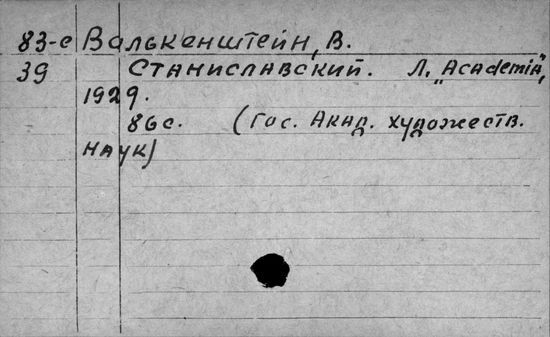 83-е Валькенштейн, В.
39 Станиславский. Л. „Academia",
1929.
86с. (Гос. Акад. художеств.
наук)